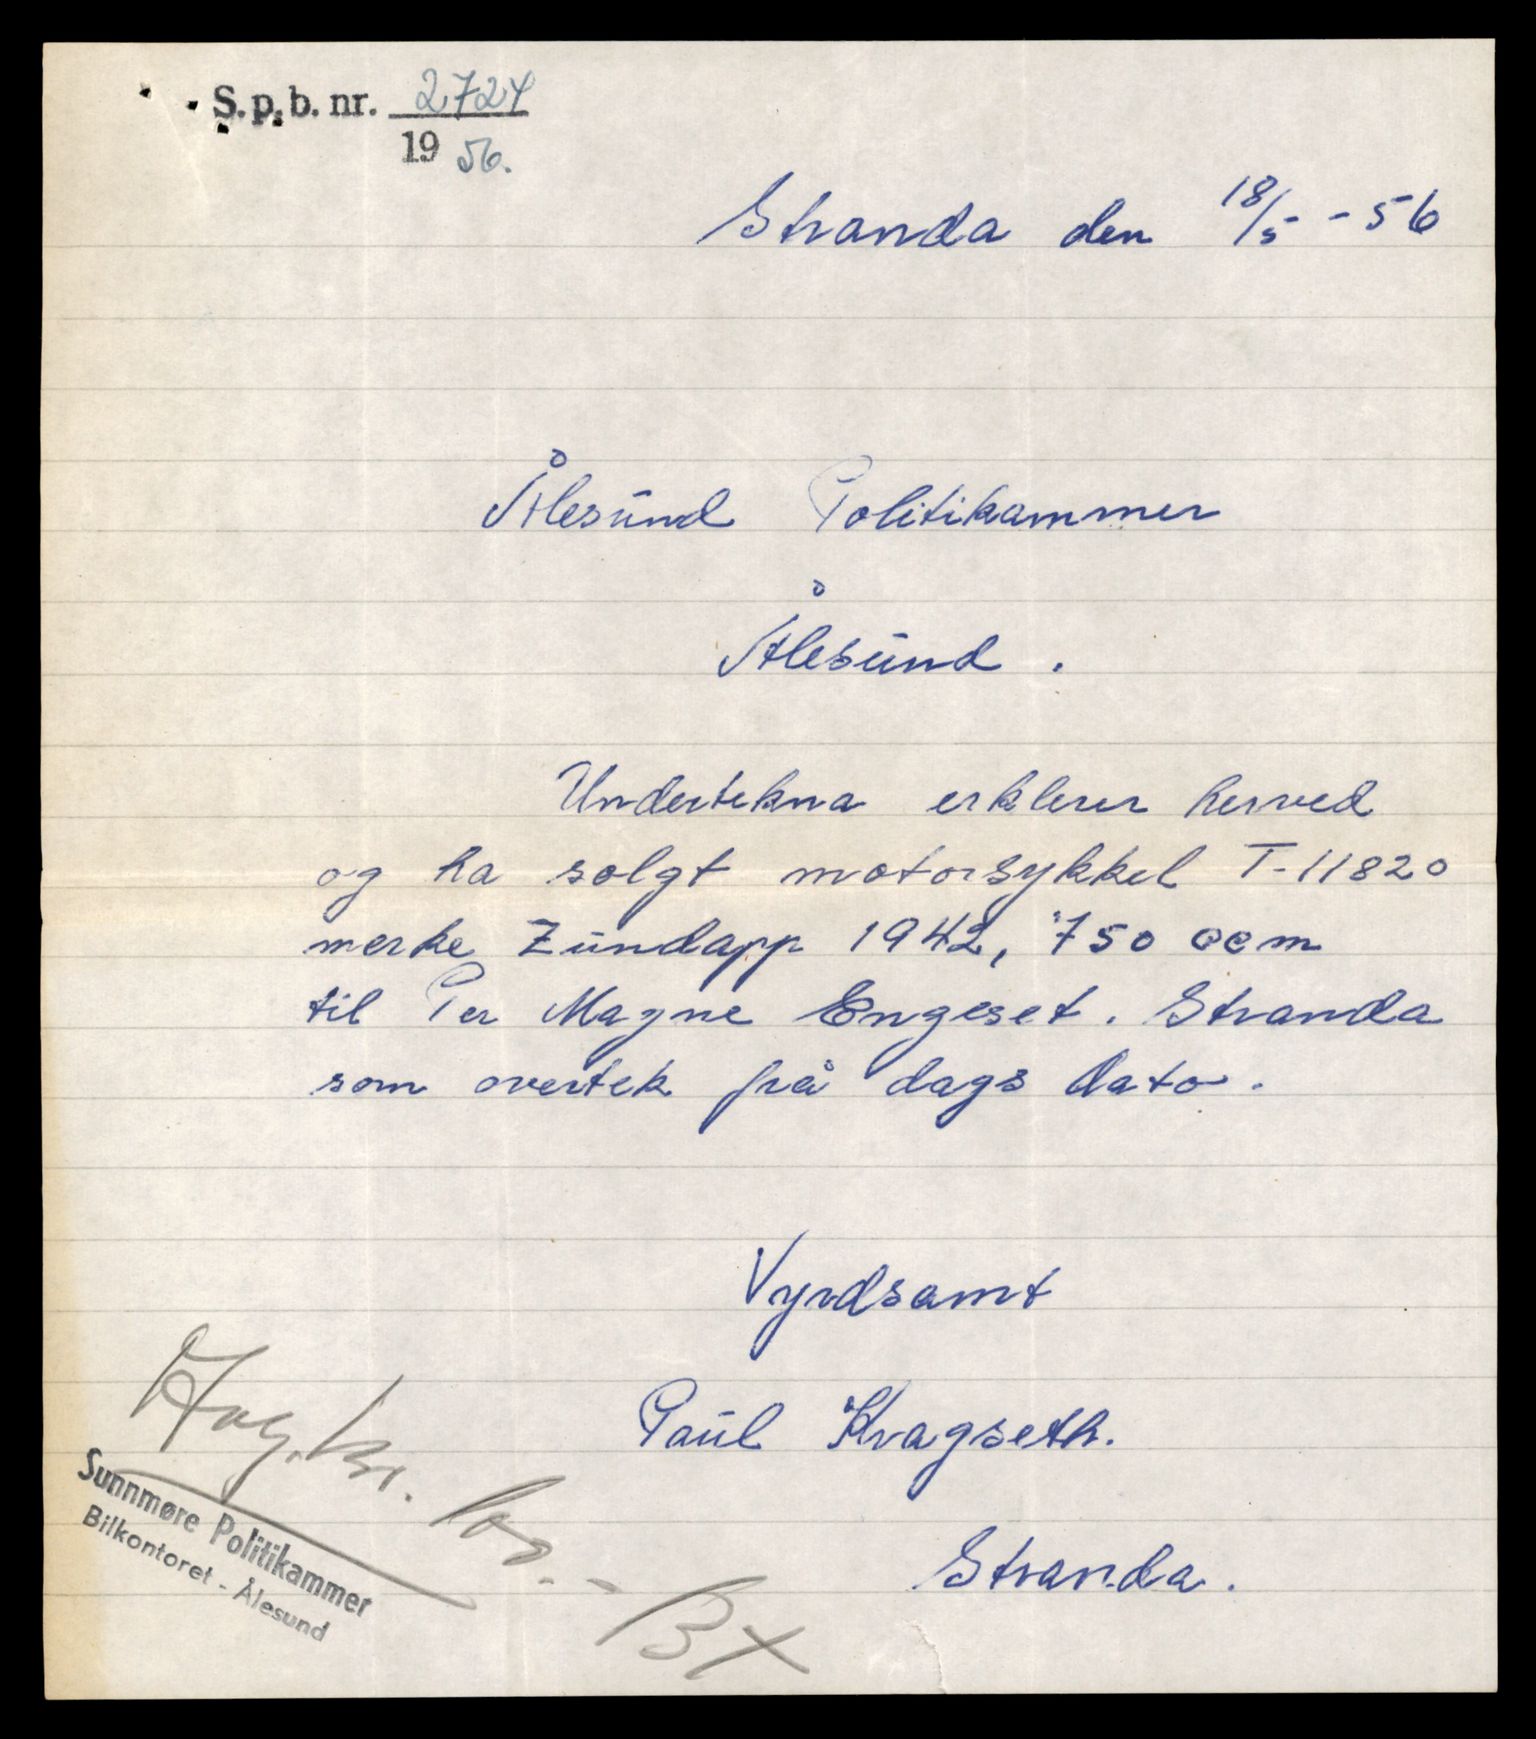 S.p.b. nr. 2724
19 56.
Stranda den 18/5 - 56
Ålesund Politikammer
Ålesund.
Undertekna erklerer herved
og ha solgt motorsykkel T-11820
merke Zündapp 1942, 750 ccm
til Per Magne Engeset. Stranda
som overtek frå dags dato.
Vyrdsamt
Paul Kvagseth.
Stranda.
Sunnmøre Politikammer
Bilkontoret - Ålesund